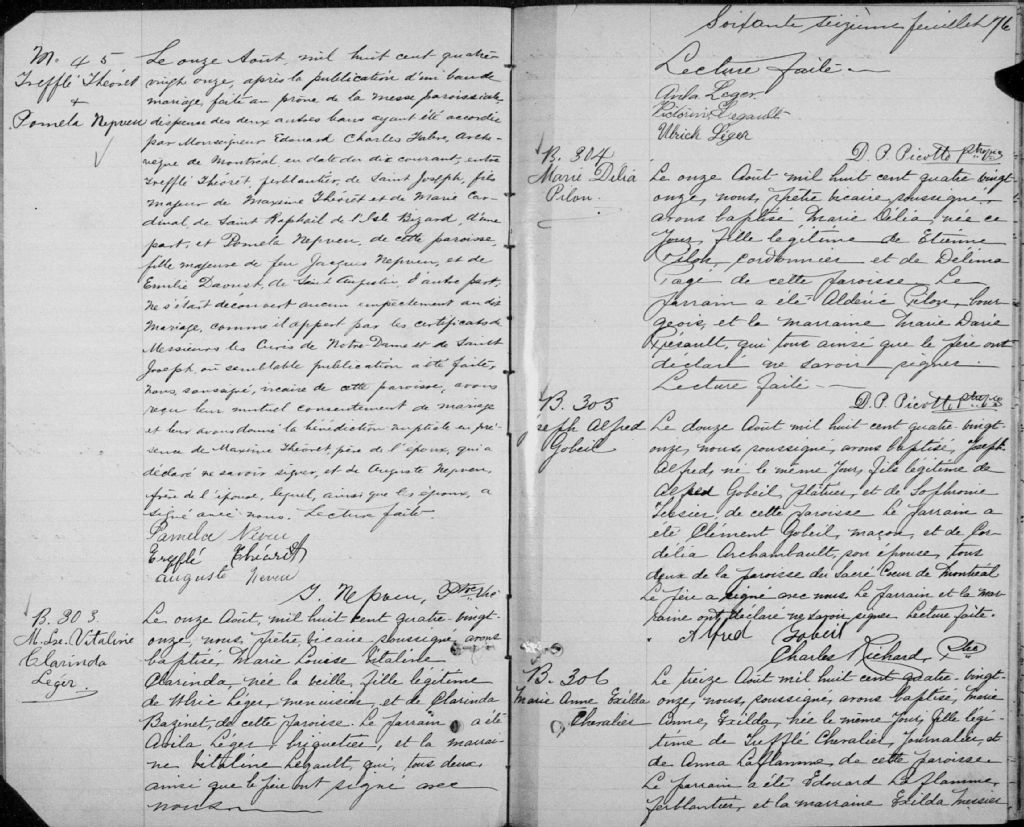 M. 45
Trefflé Théoret
+
Pomela Nepveu
Le onze Août, mil huit cent quatre-
vingt onze, après la publication d'un ban de
mariage, faite au prône de la messe paroissiale,
dispense des deux autres bans ayant été accordée
par Monseigneur Edouard Charles Fabre, Arche-
vêque de Montréal en date du dix courant, entre
Trefflé Théorêt, ferblantier, de Saint Joseph, fils
majeur de Maxime Théorêt et de Marie Car-
dinal, de Saint Raphaël de l'Isle Bizard, d'une
part, et Pomela Nepveu, de cette paroisse,
fille majeure de feu Jacques Nepveu, et de
Emilie Daoust, de Saint Augustin, d'autre part,
ne s'étant découvert aucun empêchement au dit
mariage, comme il appert par les certificats de
Messieurs les Curés de Notre-Dame et de Saint
Joseph, où semblable publication a été faite,
nous, soussigné, vicaire de cette paroisse, avons
reçu leur mutuel consentement de mariage
et leur avons donné la bénédiction nuptiale en pré-
sence de Maxime Théoret, père de l'époux, qui a
déclaré ne savoir signer, et de Auguste Nepveu,
frère de l'épouse, lequel, ainsi que les époux, a
signé avec nous. Lecture faite.
Pamela Neveu
Trefflé Théorêt
auguste Neveu
G. Nepveu, Ptre Vic
B. 303
M. Lse. Vitaline
Clarinda
Leger
Le onze Août, mil huit cent quatre-vingt-
onze, nous, prêtre vicaire soussigné, avons
baptisé, Marie Louise Vitaline
Clarinda, née la veille, fille légitime
de Ulric Léger, menuisier, et de Clarinda
Bazinet, de cette paroisse. Le parrain a été
Avila Léger, briquetier, et la marrai-
ne Vitaline Legault qui, tous deux,
ainsi que le père ont signé avec
nous
Soixante seizième feuillet 76
Lecture faite
Avila Leger
Victorine Legault
Ulrick Léger
D. P. Picotte ptre vic
B. 304
Marie Délia
Pilon.
Le onze Août mil huit cent quatre-vingt-
onze, nous, prêtre vicaire, soussigné,
avons baptisé Marie Délia née ce
jour, fille légitime de Etienne
Pilon, cordonnier et de Délima
Pagé de cette paroisse Le
parrain a été Aldéric Pilon, bour-
geois, et la marraine Marie Darie
qui tous ainsi que le père ont
déclaré ne savoir signer
Lecture faite
D. P. Picotte Ptre vic
B. 305
Joseph Alfred
Gobeil
Le douze Août mil huit cent quatre vingt-
onze, nous, soussigné, avons baptisé, Joseph
Alfred, né le même jour, fils légitime de
Alfred Gobeil, plâtrier, et de Sophronie
Tessier, de cette paroisse Le parrain a
été Clément Gobeil, maçon, et de Cor-
délia Archambault, son épouse, tous
deux de la paroisse du Sacré Coeur de Montréal
Le père a signé avec nous Le parrain et la mar-
raine ont déclaré ne savoir signer Lecture faite.
Alfred Gobeil
Charles Richard, Ptre
B. 306
Marie Anne Exilda
Chevalier
Le treize Août mil huit cent quatre-vingt-
onze, nous, soussigné, avons baptisé, Marie
Anne, Exilda, née le même jour, fille légi-
time de Trefflé Chevalier, journalier, et
de Anna Laflamme, de cette paroisse
Le parrain a été Edouard Laflamme,
ferblantier, et la marraine Exilda Meisier